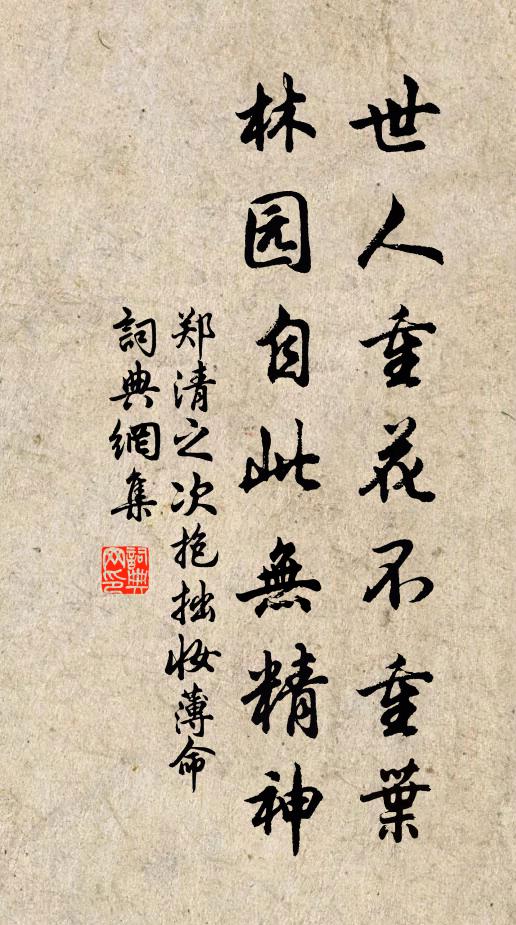 世人重花不重葉
林园自此無精神
郑清之次抱拙妆薄命
詞典網集
詞典网印